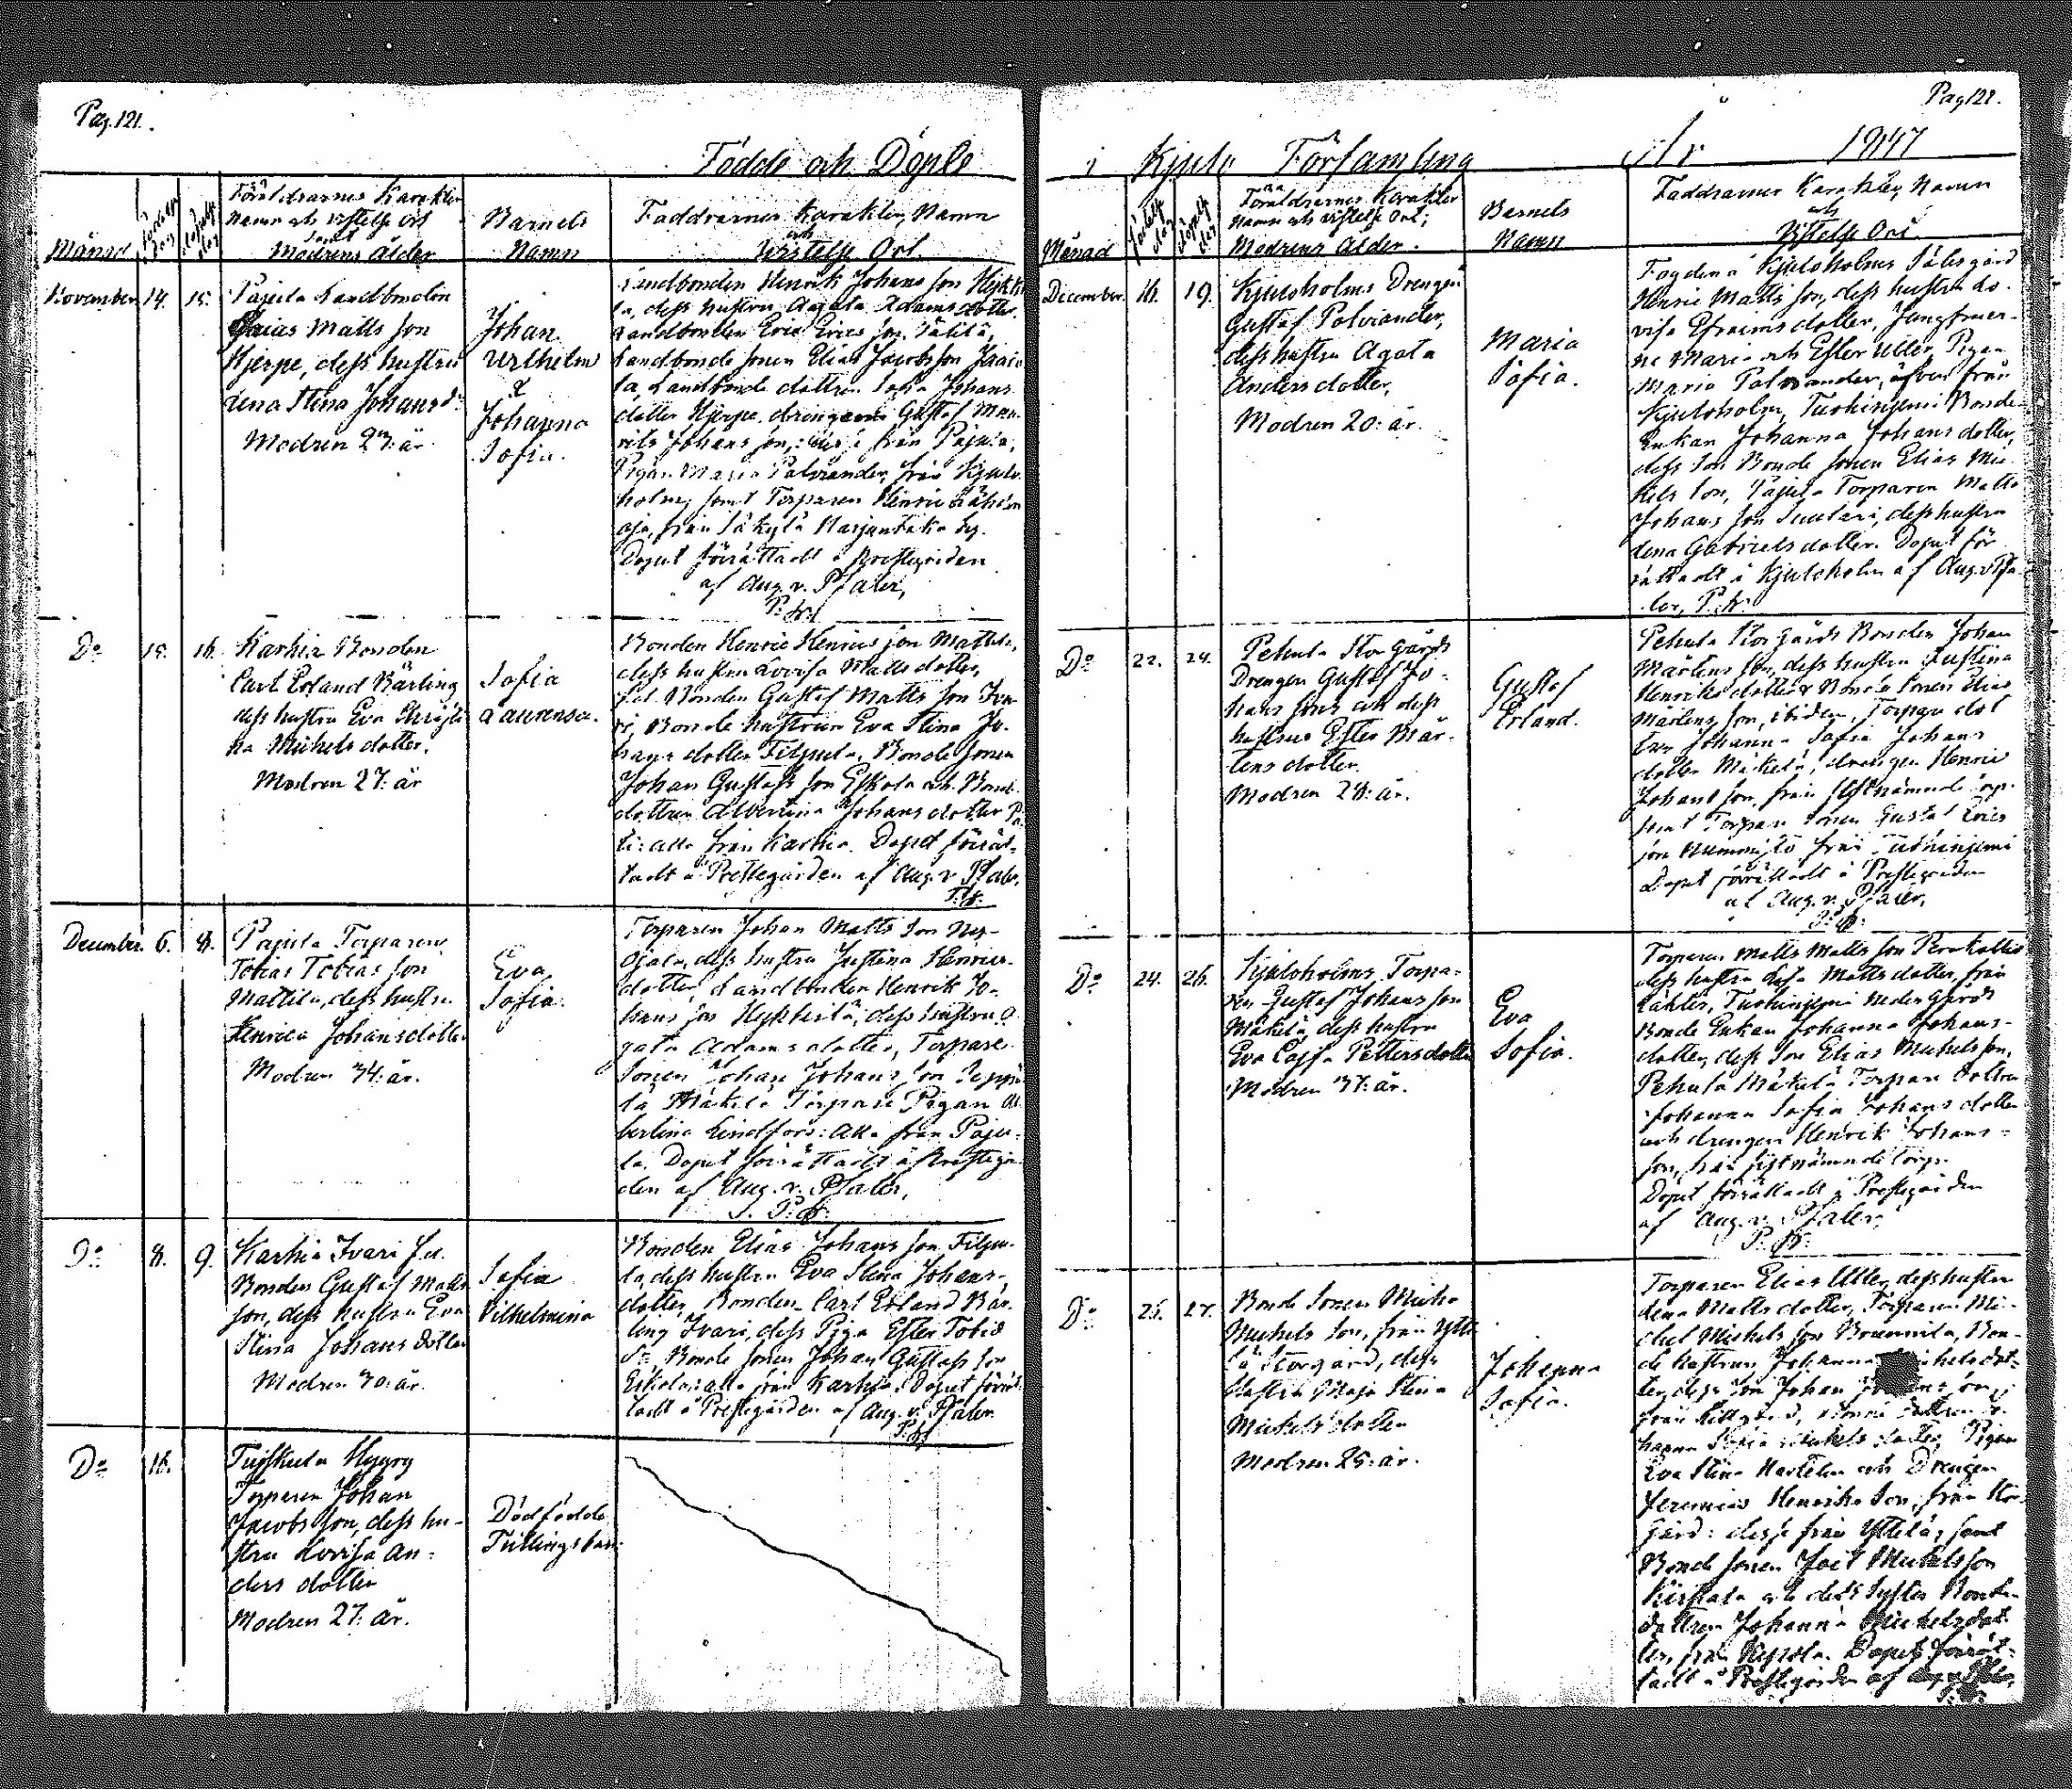 Pag. 121.
Födde och Döpte
Månad
Föräldrarnes Karakter
Namn och vistelse Ort
samt
Modrens Ålder
Barnets
Namn
Faddrarnes Karakter, Namn
och
Vistelse Ort.
November 14. 15.
Pajula Landbonden
Esaias Matts son
Hjerpe, dess hustru
Lena Stina Johansd:
Modren 23: år
Johan
Wilhelm
&
Johanna
Sofia.
Landbonden Henrik Johans son Heikki
la, dess hustru Agata Adamsdotter,
Landbonden Eric Erics son
Landbonde sonen Elias Jacobsson
la, Landbonde dottren Sofia Johans
dotter Hjerpe, drengarne Gustaf Mau
rits Johans son, från Pajula,
Pigan Maria Palviander, från Kjulo
holm, samt Torparen Henric
oja, från Säkylä
Dopet förrättadt å Prestgården
af Aug. v. Pfaler,
Do 15. 16.
Karhia Bonden
Carl Erland Bärling
dess hustru Eva Christi
na Michels dotter.
Modren 27: år
Sofia
Laurensa.
Bonden Henric Henrics son Mattila,
dess hustru Lovisa Matts dotter,
f.d. Bonden Gustaf Matts son Iva
ri, Bonde hustrun Eva Stina Jo-
hans dotter Filpula, Bonde sonen
Johan Gustafs son Eskola och Bonde
dottren Albertina Johans dotter
alla från Karhia. Dopet förrät-
tadt å Prestegården af Aug. v. Pfaler.
December. 6. 8.
Pajula Torparen
Tobias Tobias son
Mattila, dess hustru
Henrica Johansdotter
Modren 34: år.
Eva
Sofia.
Torparen Johan Matts son
ojala, dess hustru Justina Henrics-
dotter, Landbonden Henrik Jo-
hans son Heikkilä, dess hustru A-
gata Adams dotter, Torpare
sonen Johan Johans son Seppä
lä Mäkelä Torpare Pigan Al
bertina Lindfors: alla från Paju-
la. Dopet förrättadt å Prestegår
den af Aug. v. Pfaler,
Do 8. 9.
Karhia Ivari f.d.
Bonden Gustaf Matts
son, dess hustru Eva
Stina Johans dotter
Modren 30: år.
Sofia
Vilhelmina
Bonden Elias Johans son Filpu-
la, dess hustru Eva Stina Johans-
dotter, Bonden Carl Erland Bär-
ling Ivari, dess Piga Ester Tobias
Dr Bonde sonen Johan Gustafs son
Eskola: alla från Karhia. Dopet förrät
tadt å Prestegården af Aug. v. Pfaler.
Do 16.
Tuiskula Hyyry
Torparen Johan
Jacobs son, dess hu-
stru Lovisa An-
ders dotter
Modren 27: år.
Dödfödde
Tvillingsbarn
Pag 122.
i Kjulo Församling År 1847
Månad
Födelse
dag
döpelse
dag
Föräldrarnes Karakter
Namn och vistelse Ort;
Modrens Ålder.
Barnets
Namn
Faddrarnes Karakter, Namn
och
Vistelse Ort.
December. 16. 19.
Kjuloholms Drengen
Gustaf Palviander,
dess hustru Agata
Anders dotter.
Modren 20: år.
Maria
Sofia.
Fogden å Kjuloholms Sätesgård
Henric Matts son, dess hustru Lo-
visa Efraims dotter, Jungfruar-
ne Maria och Ester Uller, Pigan
Maria Palviander, äfven från
Kjuloholm, Tuohiniemi Bonde
Enkan Johanna Johans dotter,
dess son Bonde sonen Elias Mic
hels son, Pajula Torparen Matts
Johans son Suutari, dess hustru
Lena Gabriels dotter. Dopet för
rättadt å Kjuloholm af Aug. v. Pfa-
ler,
Do 22. 24.
Pehula Stor gårds
Drengen Gustaf Jo-
hans sons och dess
hustrus Ester Mår-
tens dotter.
Modren 28: år.
Gustaf
Erland.
Pehula Stor gårds Bonden Johan
Mårtens son, dess hustru Justina
Henriks dotter & Bonde sonen Elias
Mårtens son, ibidem, Torpare dot
tren Johanna Sofia Johans
dotter Mäkelä, drengen Henric
Johans son, från sistnämnde torp.
samt Torpare sonen Gustaf Erics
son Nummisto från Tuohiniemi
Dopet förrättadt å Prestegården
af Aug. v. Pfaler,
Do 24. 26.
Kjuloholms Torpa-
ren Gustaf Johans son
Mäkelä, dess hustru
Eva Cajsa Petters dotter
Modren 37: år.
Eva
Sofia.
Torparen Matts Matts son
dess hustru Matts dotter, från
Tuohiniemi Nedergårds
Bonde Enkan Johanna Johans-
dotter, dess son Elias Michels son,
Pehula Mäkelä Torpare dottren
Johanna Sofia Johans dotter
och drengen Henrik Johans-
son, från sistnämnde torp.
Dopet förrättadt å Prestegården
af Aug. v. Pfaler,
Do 25. 27.
Bonde sonen Michel
Michels son, från Ytti
lä Storgård, dess
Hustru Maja Stina
Michels dotter
Modren 25: år.
Johanna
Sofia.
Torparen Elias Uller, dess hustru
Lena Matts dotter, Torparen Mi-
chel Michels son Brunnila, Bon-
de hustrun Johanna Michels dot-
ter, dess son Johan
från
hanna Sofia Michels dotter, Pigan
Eva Stina och Drengen
Jeremias Henriks son, från Stor
gård: desse från Yttilä, samt
Bonde sonen Michelsson
och dess syster Bonde-
dottren Johanna Michelsdot
ter, från Kepola. Dopet förrät-
tadt å Prestegården af Aug. v. Pfaler,